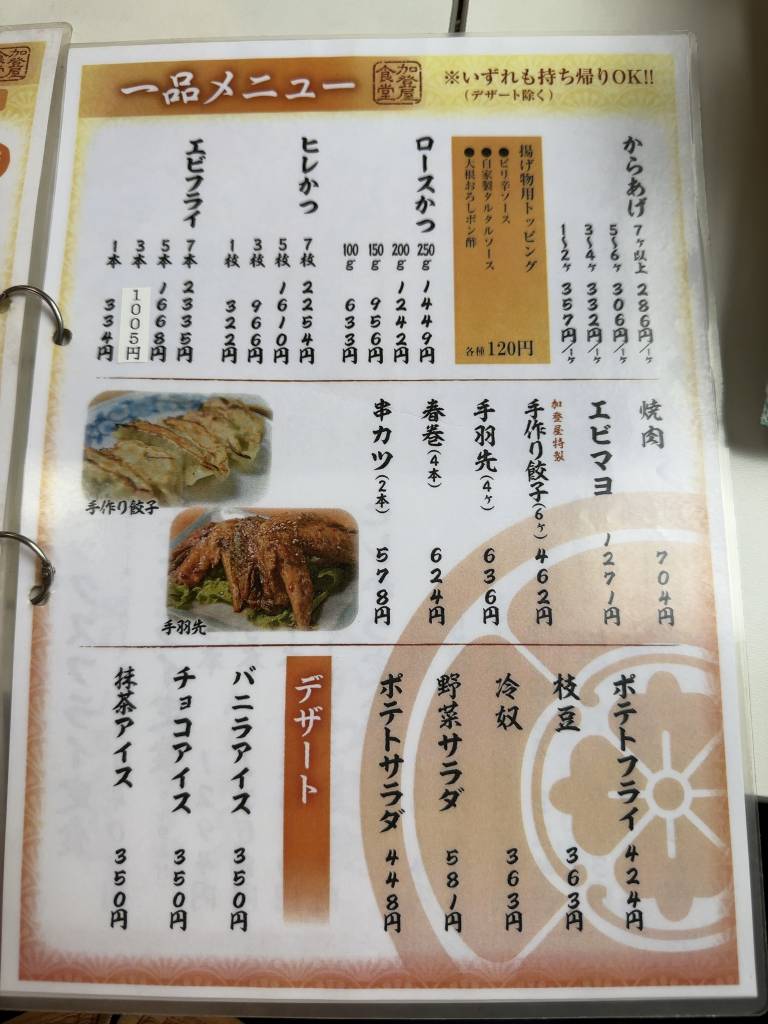 一品メニュー
加登屋食堂
※いずれも持ち帰りOK!!
(デザート除く)
からあげ
7ヶ以上 286円/1ヶ
5〜6ヶ 306円/1ヶ
3〜4ヶ 332円/1ヶ
1〜2ヶ 357円/1ヶ
揚げ物用トッピング
●ピリ辛ソース
●自家製タルタルソース
●大根おろしポン酢
各種 120円
ロースかつ
250g 1449円
200g 1242円
150g 956円
100g 633円
ヒレかつ
7枚 2254円
5枚 1610円
3枚 966円
1枚 322円
エビフライ
7本 2335円
5本 1668円
3本 1005円
1本 334円
焼肉 704円
エビマヨ 1271円
加登屋特製
手作り餃子(6ヶ) 462円
手羽先(4ヶ) 636円
春巻(4本) 624円
串カツ(2本) 578円
手作り餃子
手羽先
ポテトフライ 424円
枝豆 363円
冷奴 363円
野菜サラダ 581円
ポテトサラダ 448円
デザート
バニラアイス 350円
チョコアイス 350円
抹茶アイス 350円